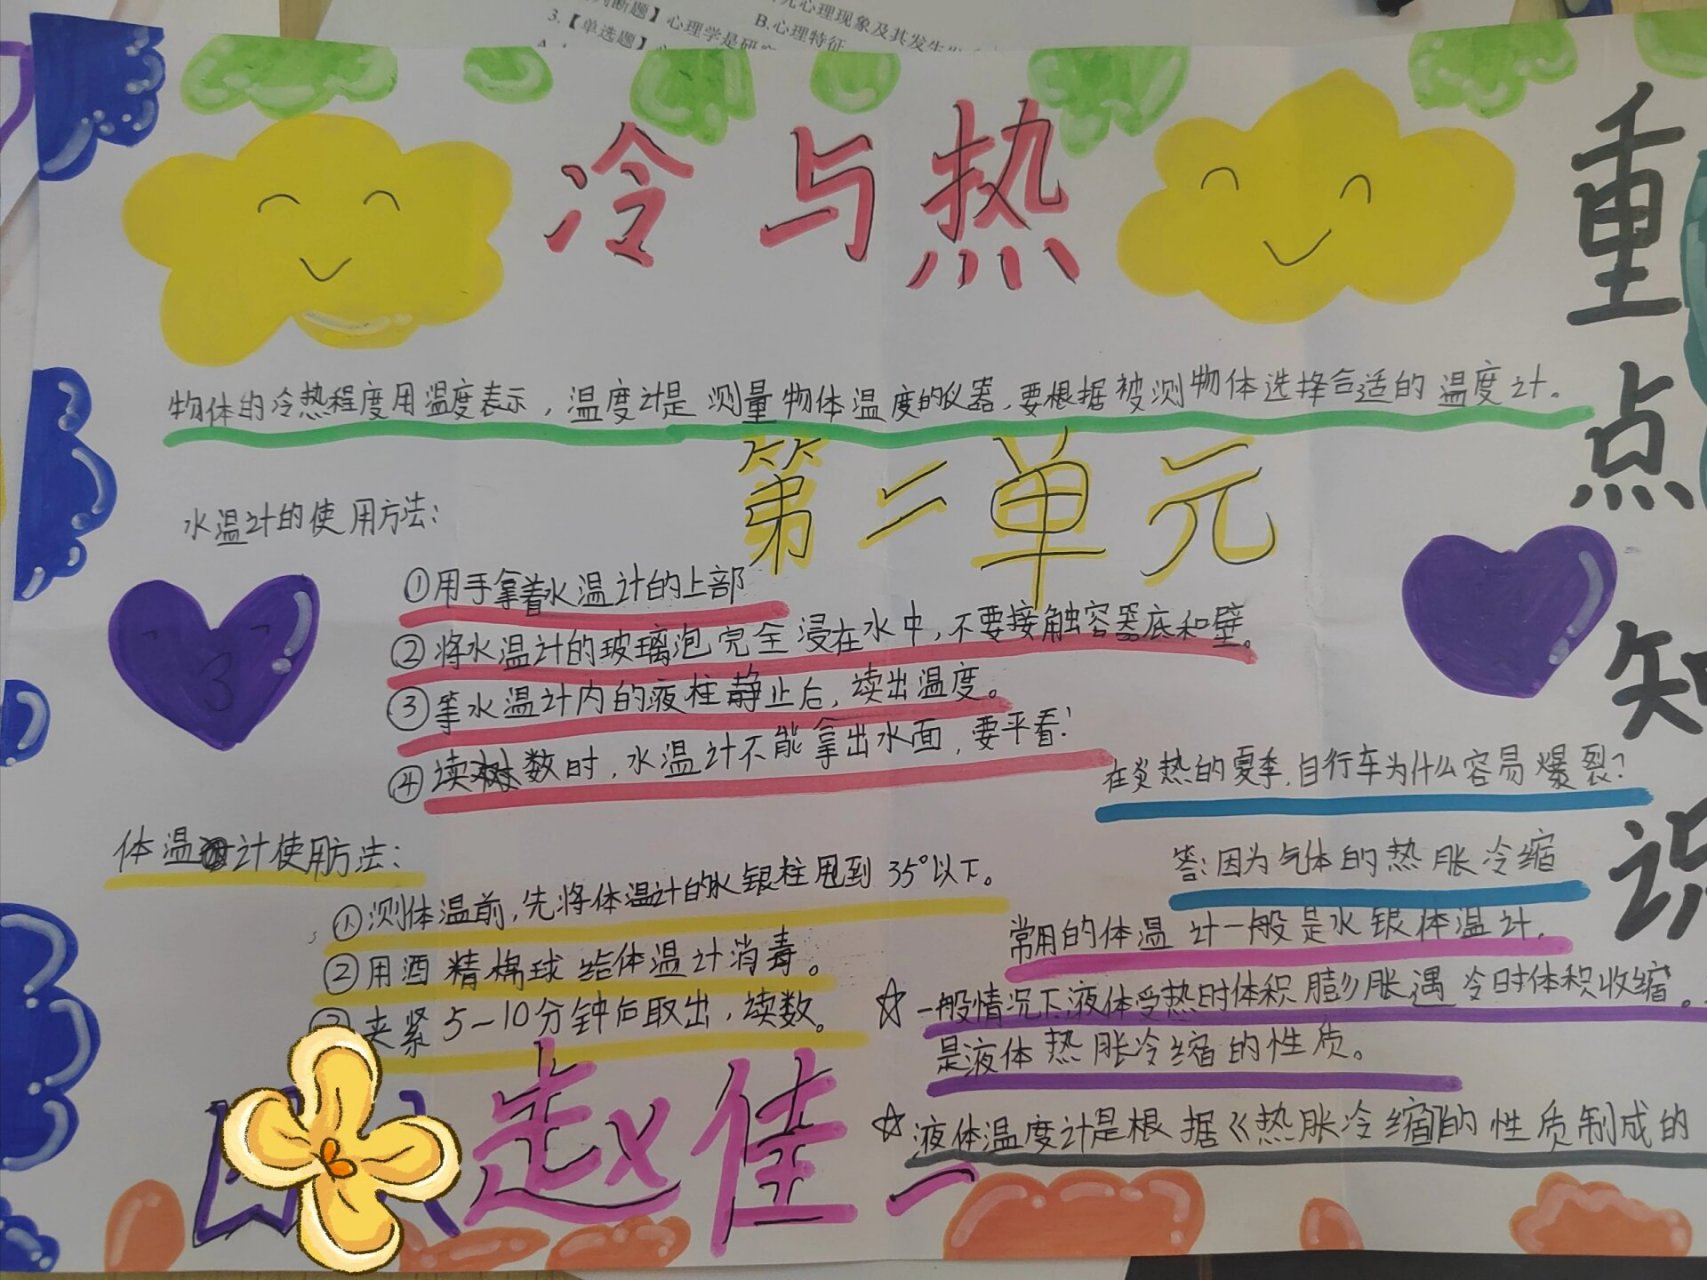 判断题】心理学是研究
3.【单选题】
B.心理特征
心理现象及其发生
冷与热
重点知识
物体的冷热程度用温度表示，温度计是测量物体温度的仪器，要根据被测物体选择合适的温度计。
第二单元
水温计的使用方法：
①用手拿着水温计的上部
②将水温计的玻璃泡完全浸在水中，不要接触容器底和壁。
③等水温计内的液柱静止后，读出温度。
④读数时，水温计不能拿出水面，要平看！
在炎热的夏季，自行车为什么容易爆裂？
答：因为气体的热胀冷缩
体温计使用方法：
①测体温前，先将体温计的水银柱甩到35°以下。
②用酒精棉球给体温计消毒。
夹紧5-10分钟后取出，读数。
常用的体温计一般是水银体温计.
☆一般情况下，液体受热时体积膨胀遇冷时体积收缩。
是液体热胀冷缩的性质。
☆液体温度计是根据《热胀冷缩的性质制成的
赵佳一